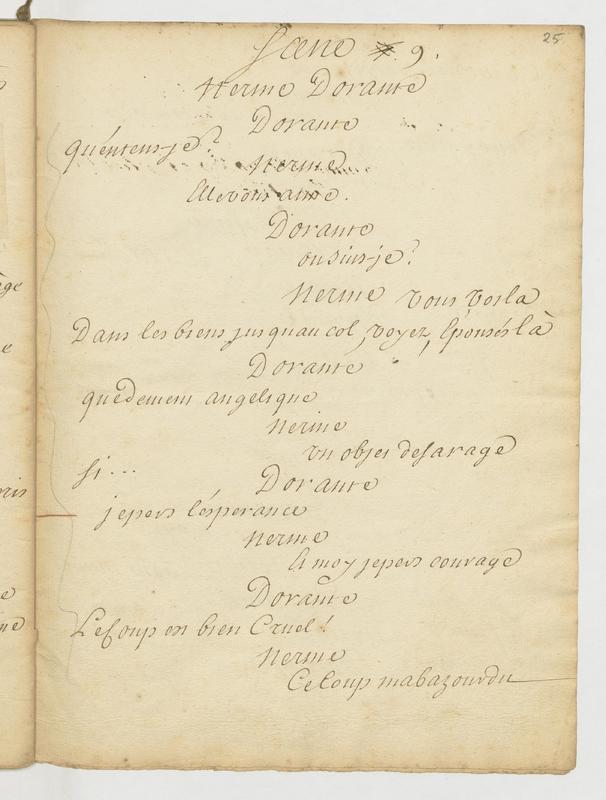 25
Scene 9.
Nerine Dorante
Dorante
qu'entens-je?
Nerine
Elle vous aime.
Dorante
ou suis-je?
Nerine vous voila
Dans les biens jusquau col, voyez, Epousés là
Dorante
quedevient angelique
Nerine
vn objet desavage
si...
Dorante
jepers l'ésperance
Nerine
Et moy jepers courage
Dorante
Le Coup est bien Cruel!
Nerine
Ce Coup mabazourdit
ège
e
ris
e
ne